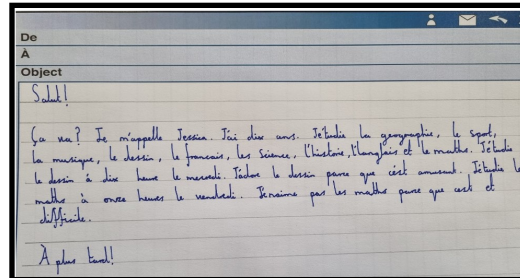 De
À
Object
Salut!
Ça va? Je m'appelle Jessica. J'ai dix ans. J'étudie la geographie, le sport,
la musique, le dessin, le francais, les Science, l'histoire, l'anglais et le maths. J'étudie
le dessin à dix heure le mercredi. J'adore le dessin parce que c'est amusant. J'étudie le
maths à onze heures le vendredi. Je n'aime pas les maths parce que cest et
difficile.
À plus tard!